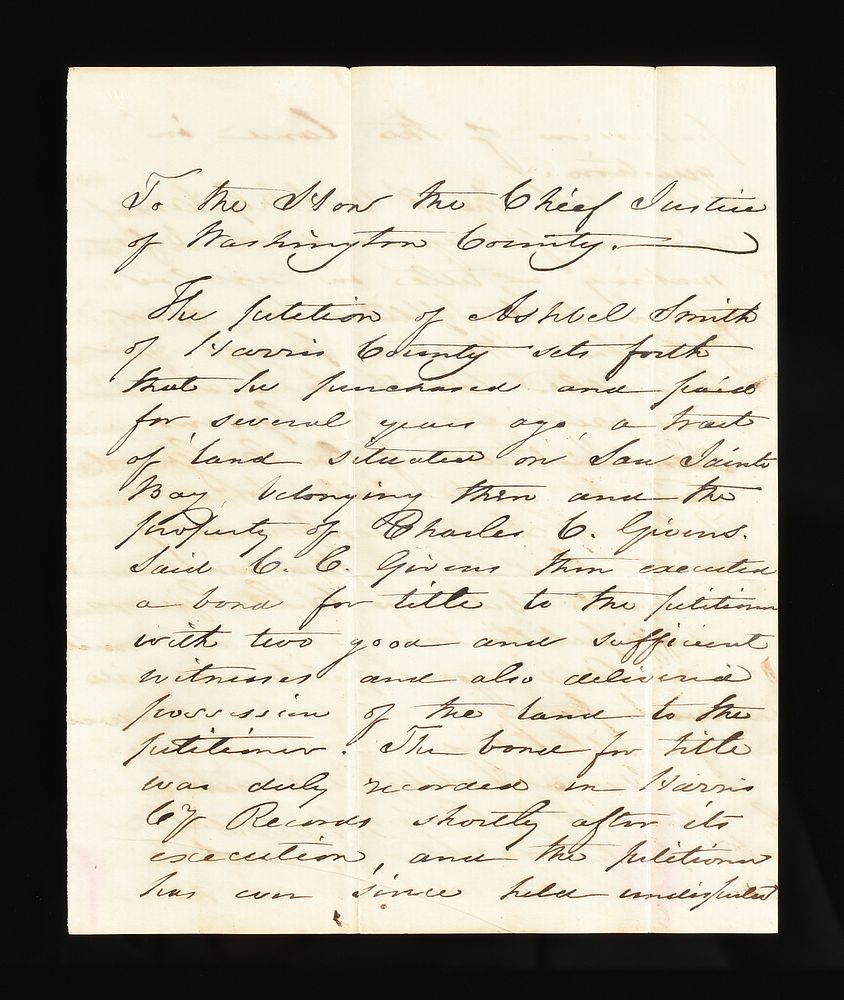 To the Hon the Chief Justice
of Washington County.
The petition of Ashbel Smith
of Harris County sets forth
that he purchased and paid
for several years ago, a tract
of land situated on San Jacinto
Bay, belonging then and the
property of Charles C. Givens.
Said C. C. Givens then executed
a bond for title to the petitioner
with two good and sufficient
witnesses and also delivered
possession of the land to the
petitioner. The bond for title
was duly recorded in Harris
Cty Records shortly after its
execution, and the petitioner
has ever since held undisputed